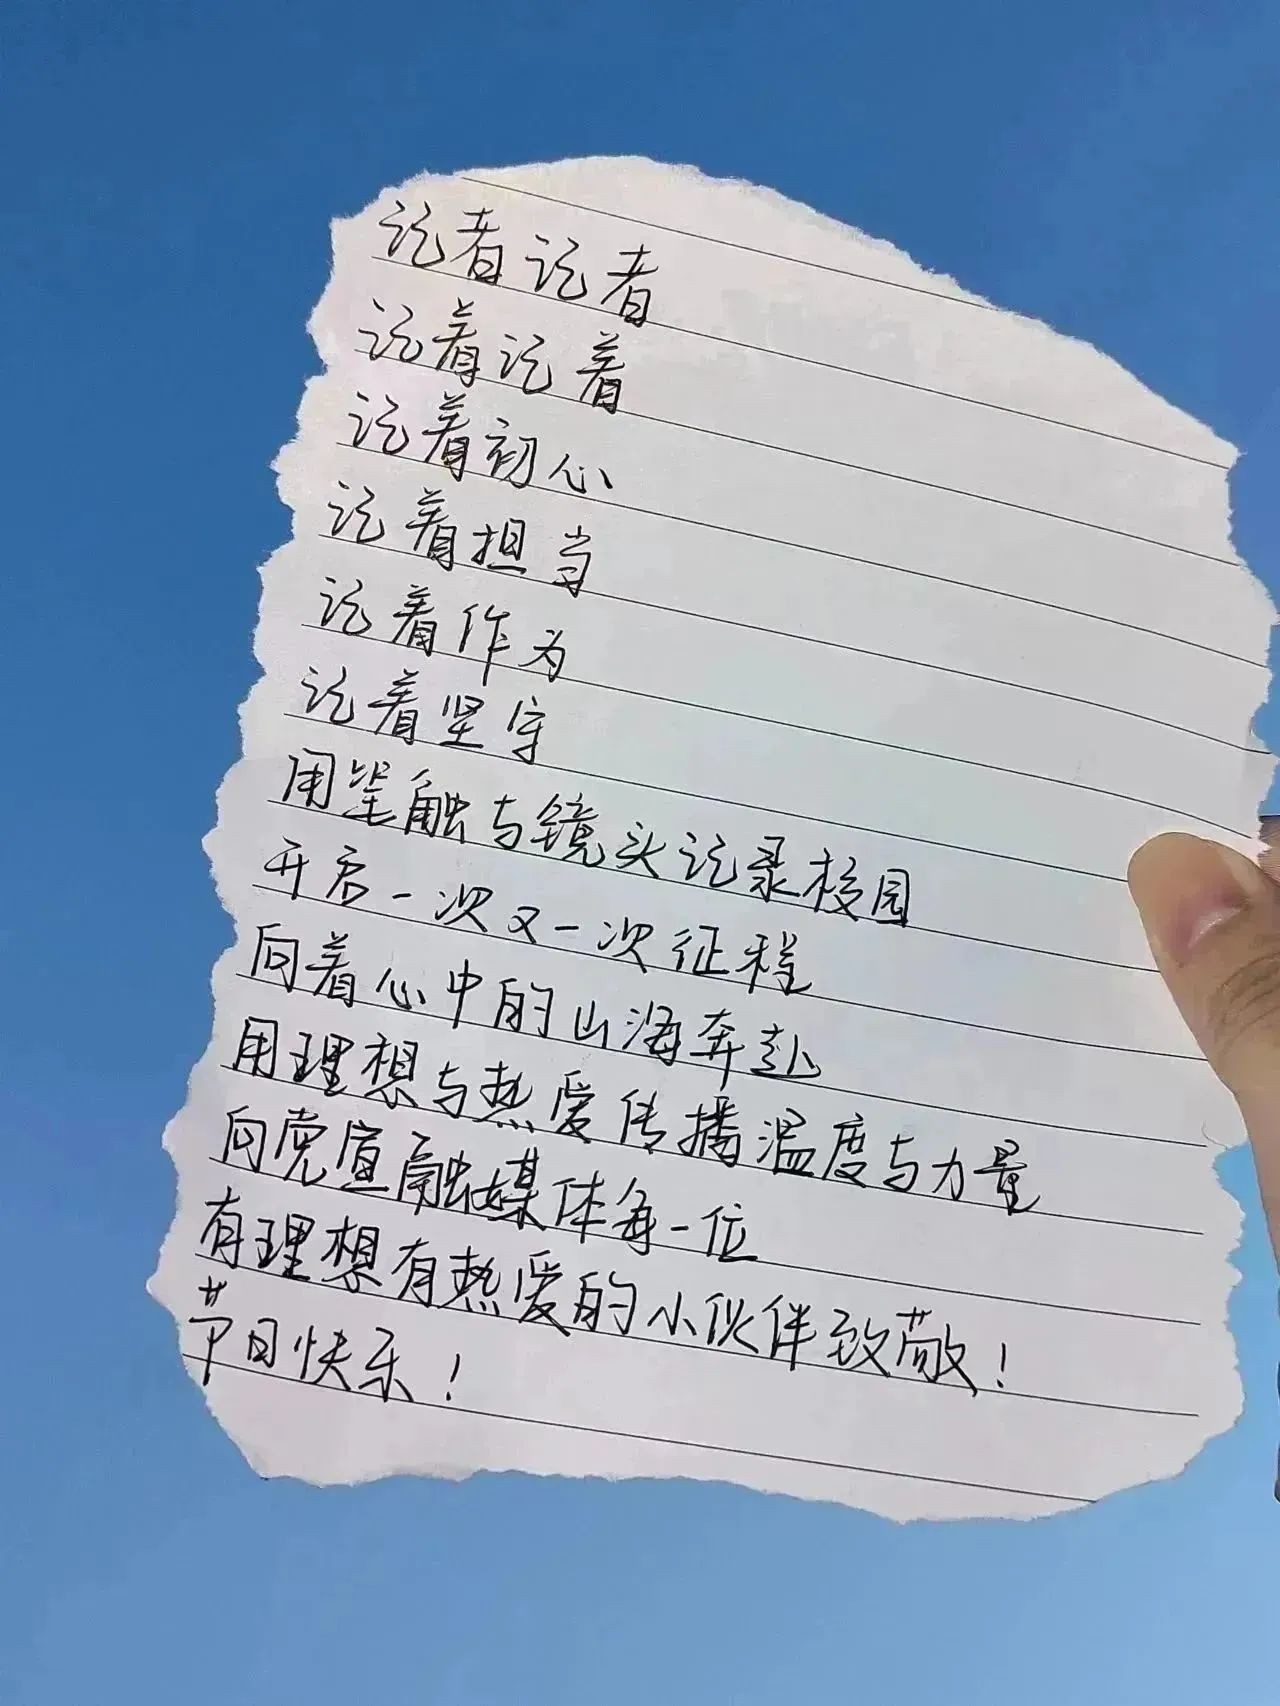 记者记者
记着记着
记着初心
记着担当
记着作为
记着坚守
用笔触与镜头记录校园
开启一次又一次征程
向着心中的山海奔赴
用理想与热爱传播温度与力量
向党宣融媒体每一位
有理想有热爱的小伙伴致敬！
节日快乐！